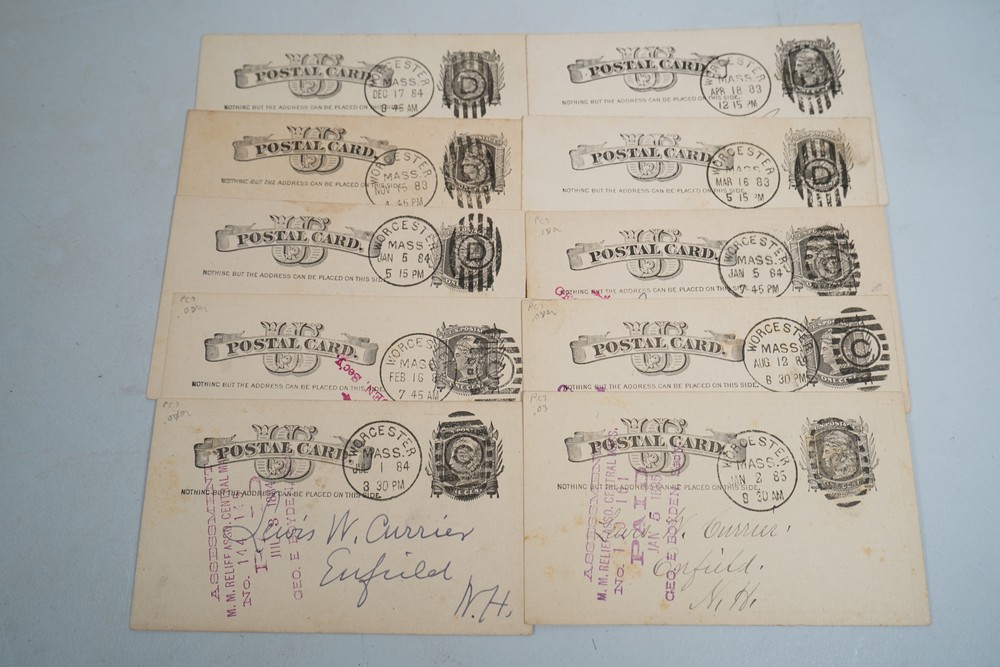 POSTAL CARD.
NOTHING BUT THE ADDRESS CAN BE PLACED ON THIS SIDE.
WORCESTER
MASS.
DEC 17 84
8 45 AM
D
POSTAL CARD.
NOTHING BUT THE ADDRESS CAN BE PLACED ON THIS SIDE.
WORCESTER
MASS.
APR 18 83
12 15 PM
POSTAL CARD.
NOTHING BUT THE ADDRESS CAN BE PLACED ON THIS SIDE.
WORCESTER
MASS.
NOV 15 83
4 45 PM
D
POSTAL CARD.
NOTHING BUT THE ADDRESS CAN BE PLACED ON THIS SIDE.
WORCESTER
MASS.
MAR 16 83
5 15 PM
D
POSTAL CARD.
NOTHING BUT THE ADDRESS CAN BE PLACED ON THIS SIDE.
WORCESTER
MASS.
JAN 5 84
5 15 PM
D
PC7
POSTAL CARD.
NOTHING BUT THE ADDRESS CAN BE PLACED ON THIS SIDE.
WORCESTER
MASS.
JAN 5 84
7 45 PM
C
PC7
POSTAL CARD.
NOTHING BUT THE ADDRESS CAN BE PLACED ON THIS SIDE.
WORCESTER
MASS
FEB 16
7 45 AM
C
Sec'y.
PC7
POSTAL CARD.
NOTHING BUT THE ADDRESS CAN BE PLACED ON THIS SIDE.
WORCESTER
MASS.
AUG 12
8 30 PM
C
PC7
POSTAL CARD.
NOTHING BUT THE ADDRESS CAN BE PLACED ON THIS SIDE.
WORCESTER
MASS.
1 84
3 30 PM
C
ONE CENT
ASSESSMENT
M. M. RELIEF ASSO. CENTRAL
No. 144
GEO. E. BOYDEN
Lewis W. Currier
Enfield
N.H.
PC7
.03
POSTAL CARD.
NOTHING BUT THE ADDRESS CAN BE PLACED ON THIS SIDE.
WORCESTER
MASS.
JAN 2 85
9 30 AM
ASSESSMENT
M. M. RELIEF ASSO. CENTRAL
No. 161
PAID
JAN 5 1885
GEO. E. BOYDEN Sec'y
Lewis W. Currier.
Enfield.
N. H.